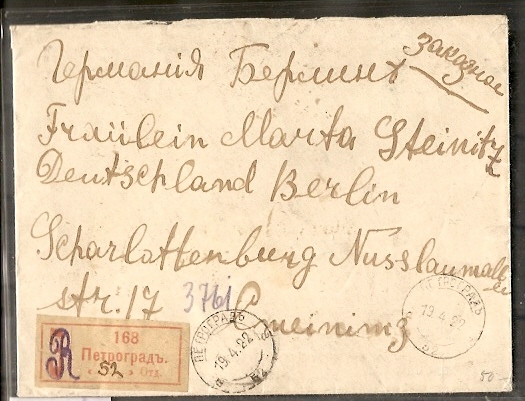 Германія Берлинъ
заказное
Fraülein Marta Steinitz
Deutschland Berlin
Scharlottenburg Nusslaumallee
str. 17 3761
R 168
Петроградъ.
52 Отд.
ПЕТРОГРАДЪ
19.4.22
52
ПЕТРОГРАДЪ
19.4.22
52
50-